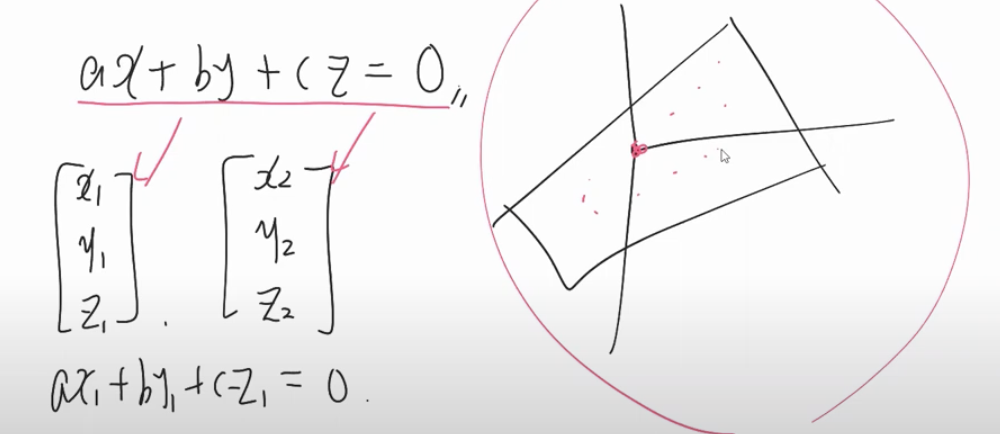 ax + by + cz = 0
[x₁ y₁ z₁] . [x₂ y₂ z₂]
ax₁ + by₁ + cz₁ = 0 .